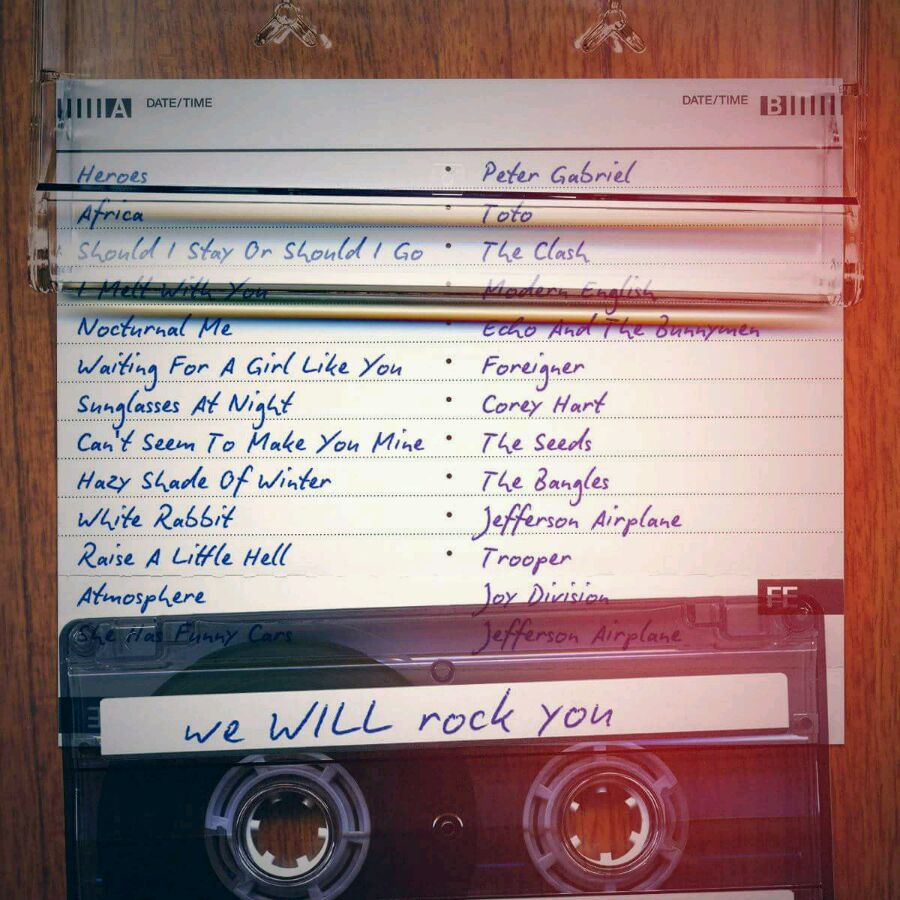 A DATE/TIME DATE/TIME B
Heroes • Peter Gabriel
Africa • Toto
Should I Stay Or Should I Go • The Clash
I Melt With You • Modern English
Nocturnal Me • Echo And The Bunnymen
Waiting For A Girl Like You • Foreigner
Sunglasses At Night • Corey Hart
Can't Seem To Make You Mine • The Seeds
Hazy Shade Of Winter • The Bangles
White Rabbit • Jefferson Airplane
Raise A Little Hell • Trooper
Atmosphere Joy Division
She Has Funny Cars Jefferson Airplane
we WILL rock you